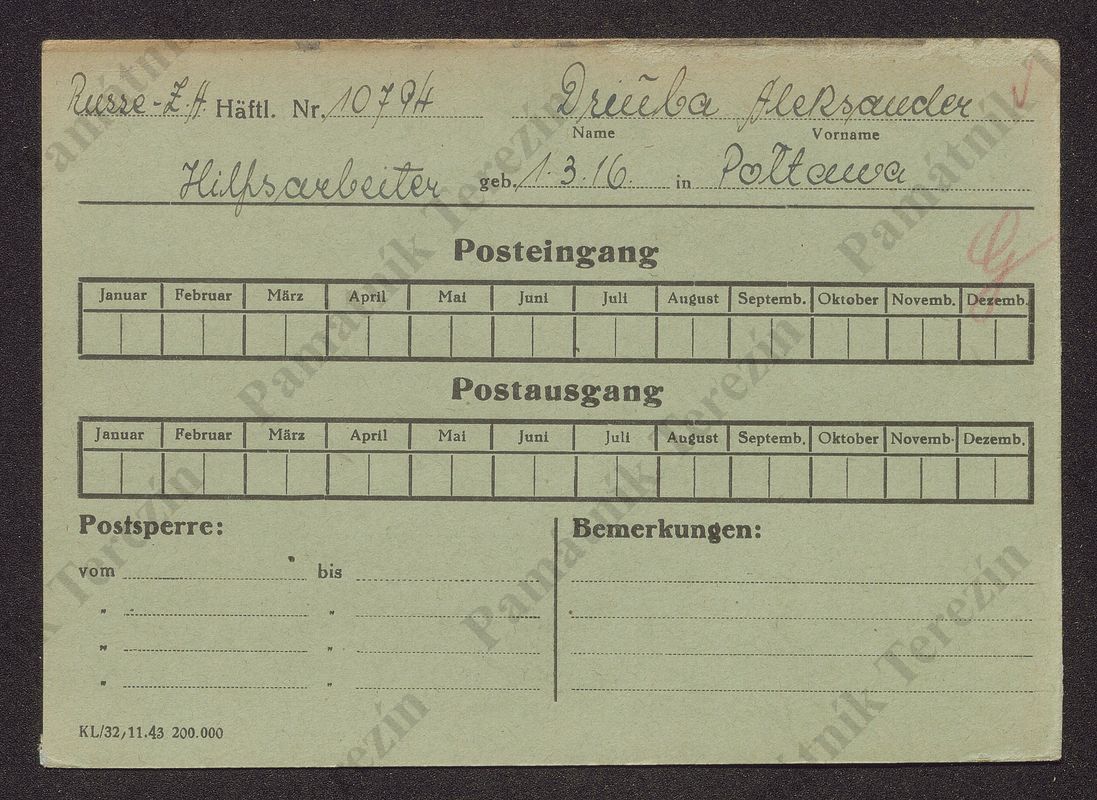 Russe-Z.A. Häftl. Nr. 10794 Driuba Aleksander
Name Vorname
Hilfsarbeiter geb. 1.3.16. in Połtawa
Posteingang
Januar Februar März April Mai Juni Juli August Septemb. Oktober Novemb. Dezemb.
Postausgang
Januar Februar März April Mai Juni Juli August Septemb. Oktober Novemb. Dezemb.
Postsperre: Bemerkungen:
vom bis
" "
" "
" "
KL/32, 11.43 200.000
Památník Terezín
Památník Terezín
Památník Terezín
Památník Terezín